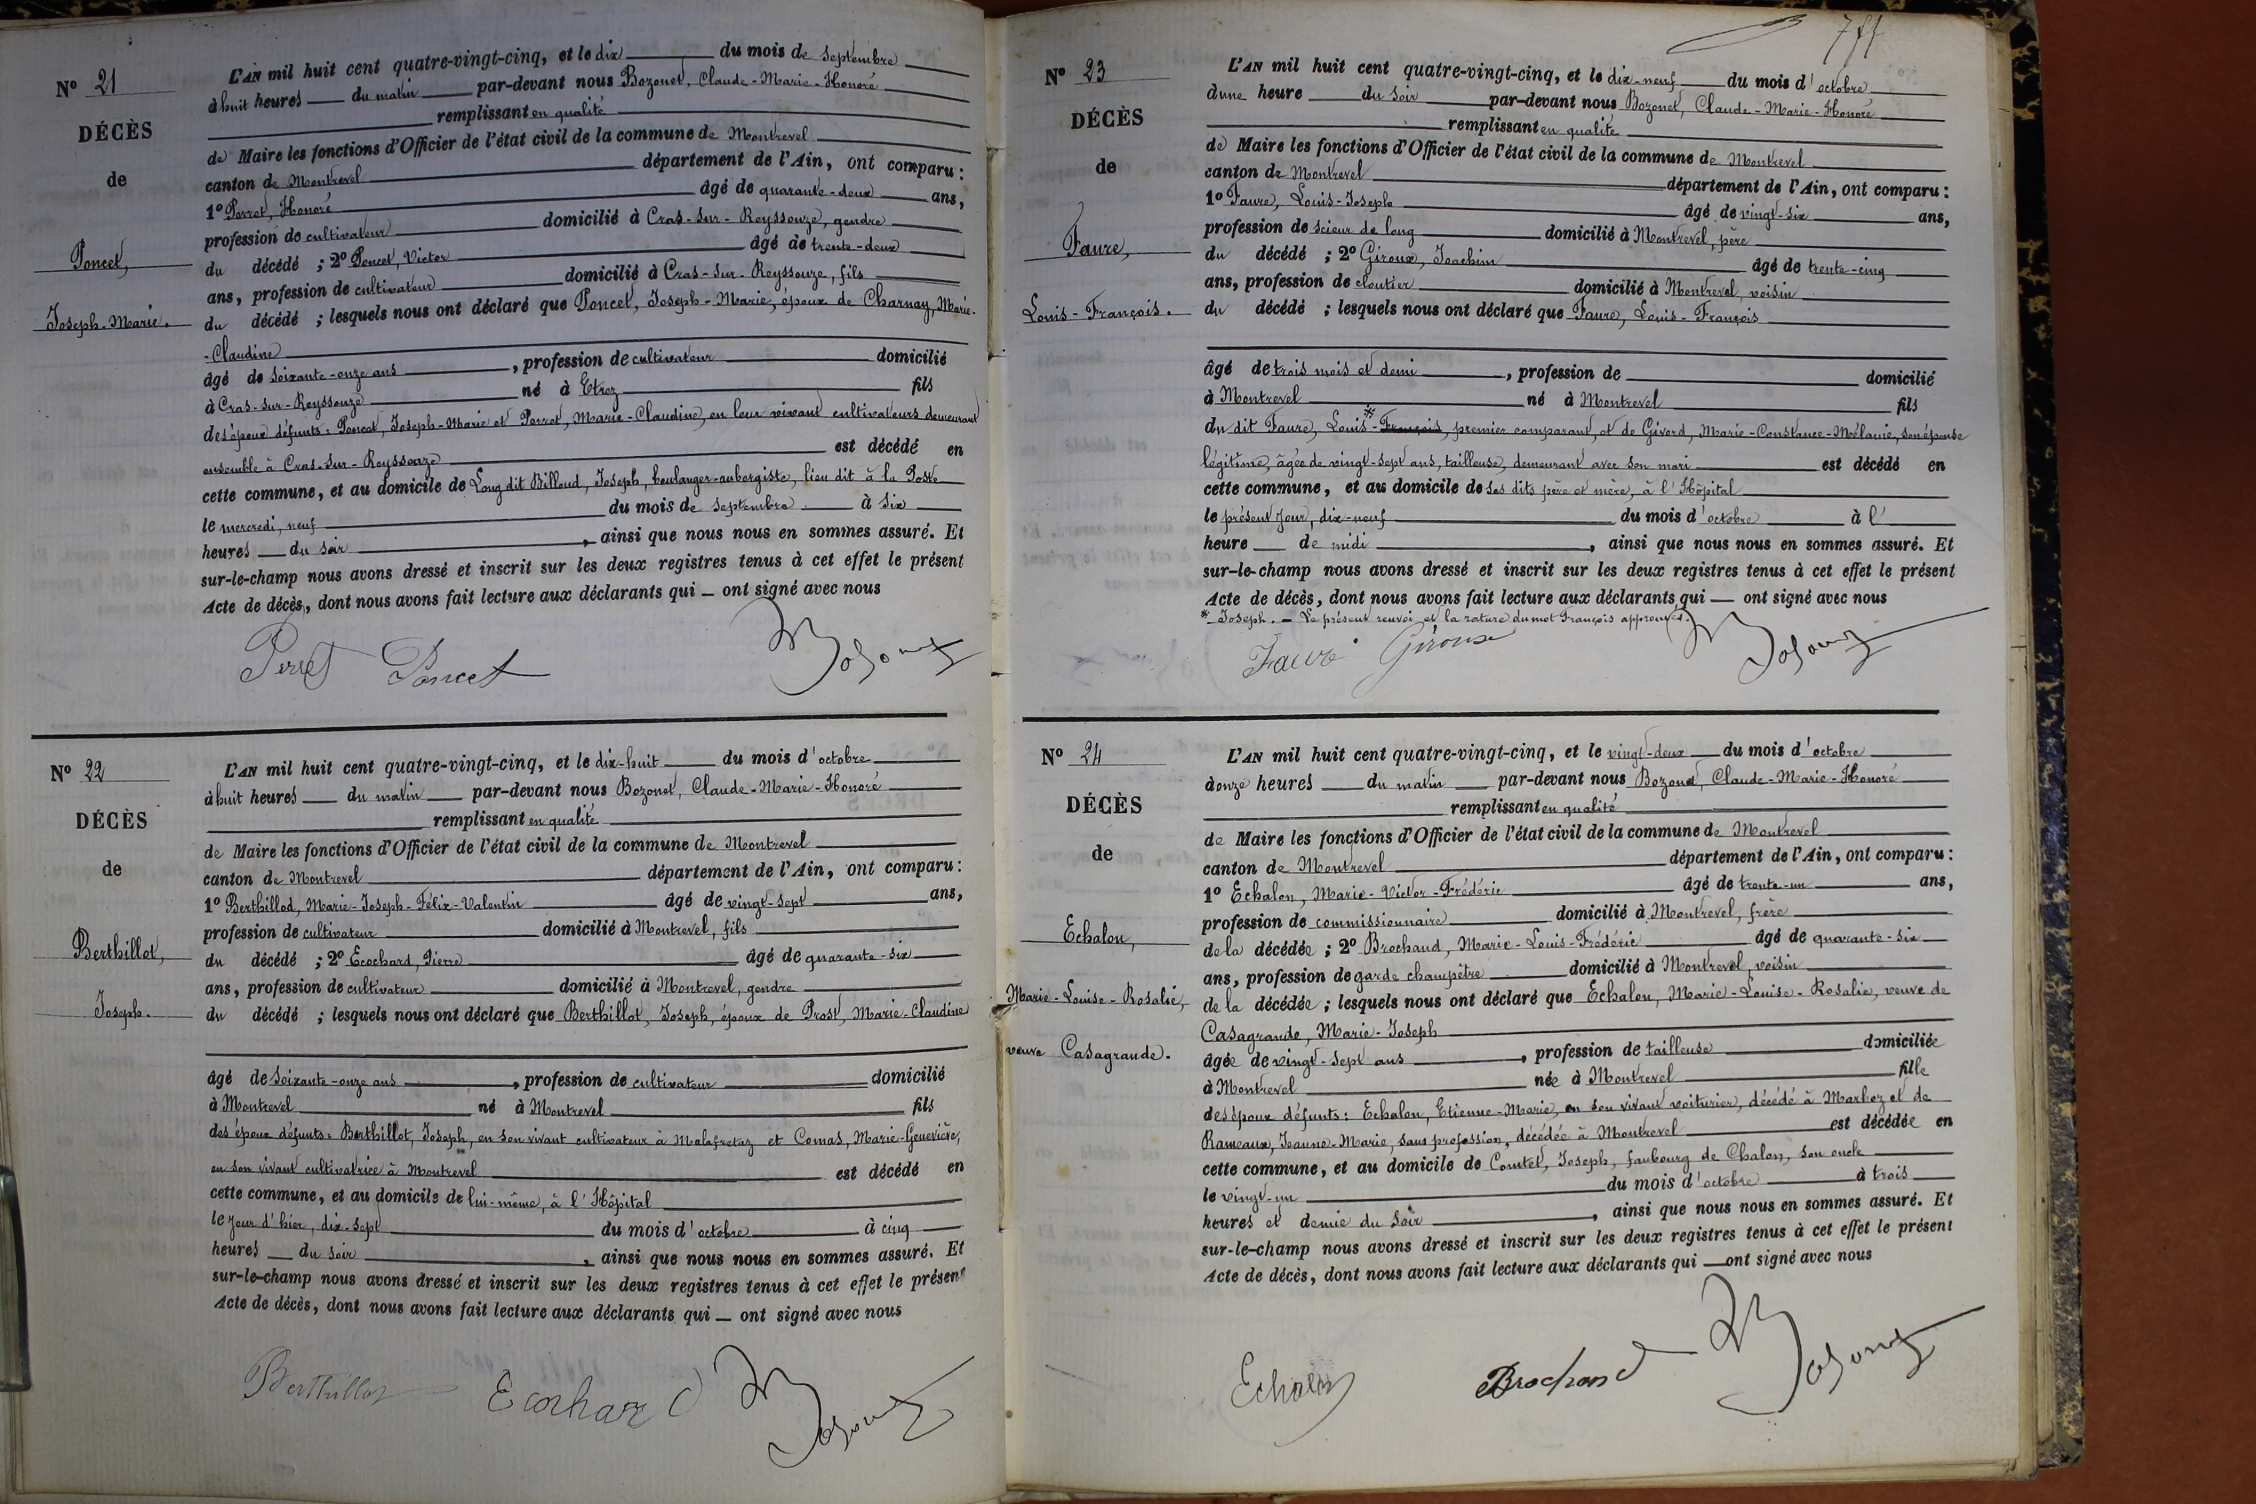 Nº 21
DÉCÈS
de
Poncet,
Joseph-Marie.
L'AN mil huit cent quatre-vingt-cinq, et le dix du mois de septembre
à huit heures du matin par-devant nous Bozonet, Claude-Marie-Honoré
remplissant en qualité
de Maire les fonctions d'Officier de l'état civil de la commune de Montrevel
canton de Montrevel département de l'Ain, ont comparu :
1º Perret, Honoré âgé de quarante-deux ans,
profession de cultivateur domicilié à Cras-sur-Reyssouze, gendre
du décédé ; 2º Poncet, Victor âgé de trente-deux
ans, profession de cultivateur domicilié à Cras-sur-Reyssouze, fils
du décédé ; lesquels nous ont déclaré que Poncet, Joseph-Marie, époux de Charnay, Marie-
-Claudine
âgé de soixante-onze ans, profession de cultivateur domicilié
à Cras-sur-Reyssouze né à Etrez fils
des époux défunts : Poncet, Joseph-Marie et Perret, Marie-Claudine, en leur vivant cultivateurs demeurant
ensemble à Cras-sur-Reyssouze est décédé en
cette commune, et au domicile de Long dit Billoud, Joseph, boulanger-aubergiste, lieu dit à la Poste
le mercredi, neuf du mois de septembre à six
heures du soir, ainsi que nous nous en sommes assuré. Et
sur-le-champ nous avons dressé et inscrit sur les deux registres tenus à cet effet le présent
Acte de décès, dont nous avons fait lecture aux déclarants qui ont signé avec nous
Perret Poncet Bozonet
Nº 22
DÉCÈS
de
Berthillot,
Joseph.
L'AN mil huit cent quatre-vingt-cinq, et le dix-huit du mois d'octobre
à huit heures du matin par-devant nous Bozonet, Claude-Marie-Honoré
remplissant en qualité
de Maire les fonctions d'Officier de l'état civil de la commune de Montrevel
canton de Montrevel département de l'Ain, ont comparu :
1º Berthillod, Marie-Joseph-Félix-Valentin âgé de vingt-sept ans,
profession de cultivateur domicilié à Montrevel, fils
du décédé ; 2º Ecochard, Pierre âgé de quarante-six
ans, profession de cultivateur domicilié à Montrevel, gendre
du décédé ; lesquels nous ont déclaré que Berthillot, Joseph, époux de Prost, Marie-Claudine
âgé de soixante-onze ans, profession de cultivateur domicilié
à Montrevel né à Montrevel fils
des époux défunts : Berthillot, Joseph, en son vivant cultivateur à Malafretaz et Comas, Marie-Geneviève,
en son vivant cultivatrice à Montrevel est décédé en
cette commune, et au domicile de lui-même, à l'Hôpital
le jour d'hier, dix-sept du mois d'octobre à cinq
heures du soir, ainsi que nous nous en sommes assuré. Et
sur-le-champ nous avons dressé et inscrit sur les deux registres tenus à cet effet le présent
Acte de décès, dont nous avons fait lecture aux déclarants qui ont signé avec nous
Berthillot Ecochard Bozonet
Nº 23
DÉCÈS
de
Faure,
Louis-François.
L'AN mil huit cent quatre-vingt-cinq, et le dix-neuf du mois d'octobre
d'une heure du soir par-devant nous Bozonet, Claude-Marie-Honoré
remplissant en qualité
de Maire les fonctions d'Officier de l'état civil de la commune de Montrevel
canton de Montrevel département de l'Ain, ont comparu :
1º Faure, Louis-Joseph âgé de vingt-six ans,
profession de scieur de long domicilié à Montrevel, père
du décédé ; 2º Giroux, Joachim âgé de trente-cinq
ans, profession de cloutier domicilié à Montrevel, voisin
du décédé ; lesquels nous ont déclaré que Faure, Louis-François
âgé de trois mois et demi, profession de domicilié
à Montrevel né à Montrevel fils
du dit Faure, Louis-* François, premier comparant, et de Givord, Marie-Constance-Mélanie, son épouse
légitime, âgée de vingt-sept ans, tailleuse, demeurant avec son mari est décédé en
cette commune, et au domicile de ses dits père et mère, à l'Hôpital
le présent jour, dix-neuf du mois d'octobre à l'
heure de midi, ainsi que nous nous en sommes assuré. Et
sur-le-champ nous avons dressé et inscrit sur les deux registres tenus à cet effet le présent
Acte de décès, dont nous avons fait lecture aux déclarants qui ont signé avec nous
* Joseph. - Le présent renvoi et la rature du mot François approuvés.
Faure Giroux Bozonet
Nº 24
DÉCÈS
de
Echalon,
Marie-Louise-Rosalie,
veuve Casagrande.
L'AN mil huit cent quatre-vingt-cinq, et le vingt-deux du mois d'octobre
à onze heures du matin par-devant nous Bozonet, Claude-Marie-Honoré
remplissant en qualité
de Maire les fonctions d'Officier de l'état civil de la commune de Montrevel
canton de Montrevel département de l'Ain, ont comparu :
1º Echalon, Marie-Victor-Frédéric âgé de trente-un ans,
profession de commissionnaire domicilié à Montrevel, frère
de la décédée ; 2º Brochand, Marie-Louis-Frédéric âgé de quarante-six
ans, profession de garde champêtre domicilié à Montrevel, voisin
de la décédée ; lesquels nous ont déclaré que Echalon, Marie-Louise-Rosalie, veuve de
Casagrande, Marie-Joseph
âgée de vingt-sept ans, profession de tailleuse domiciliée
à Montrevel née à Montrevel fille
des époux défunts : Echalon, Etienne-Marie, en son vivant voiturier, décédé à Marboz et de
Rameaux, Jeanne-Marie, sans profession, décédée à Montrevel est décédée en
cette commune, et au domicile de Comtet, Joseph, faubourg de Chalon, son oncle
le vingt-un du mois d'octobre à trois
heures et demie du soir, ainsi que nous nous en sommes assuré. Et
sur-le-champ nous avons dressé et inscrit sur les deux registres tenus à cet effet le présent
Acte de décès, dont nous avons fait lecture aux déclarants qui ont signé avec nous
Echalon Brochand Bozonet